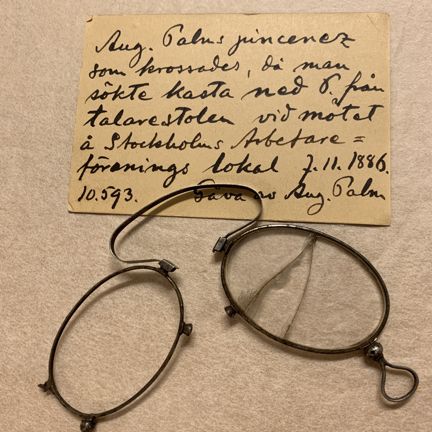 Aug. Palms pincenez
som krossades, då man
sökte kasta ned P. från
talarestolen vid mötet
å Stockholms Arbetare=
förenings lokal 7.11.1886.
10.593. Gåva av Aug. Palm